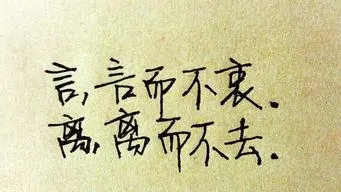 言,言而不衷。
离,离而不去。